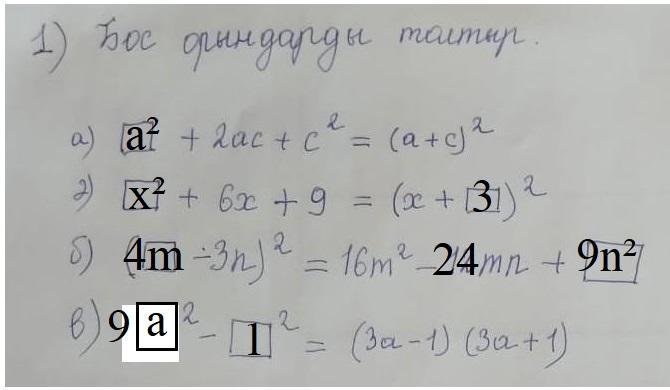 1) Бос орындарды толтыр.
а) a² + 2ac + c² = (a+c)²
ә) x² + 6x + 9 = (x + 3)²
б) (4m - 3n)² = 16m² - 24mn + 9n²
в) 9 a² - 1² = (3a-1) (3a+1)